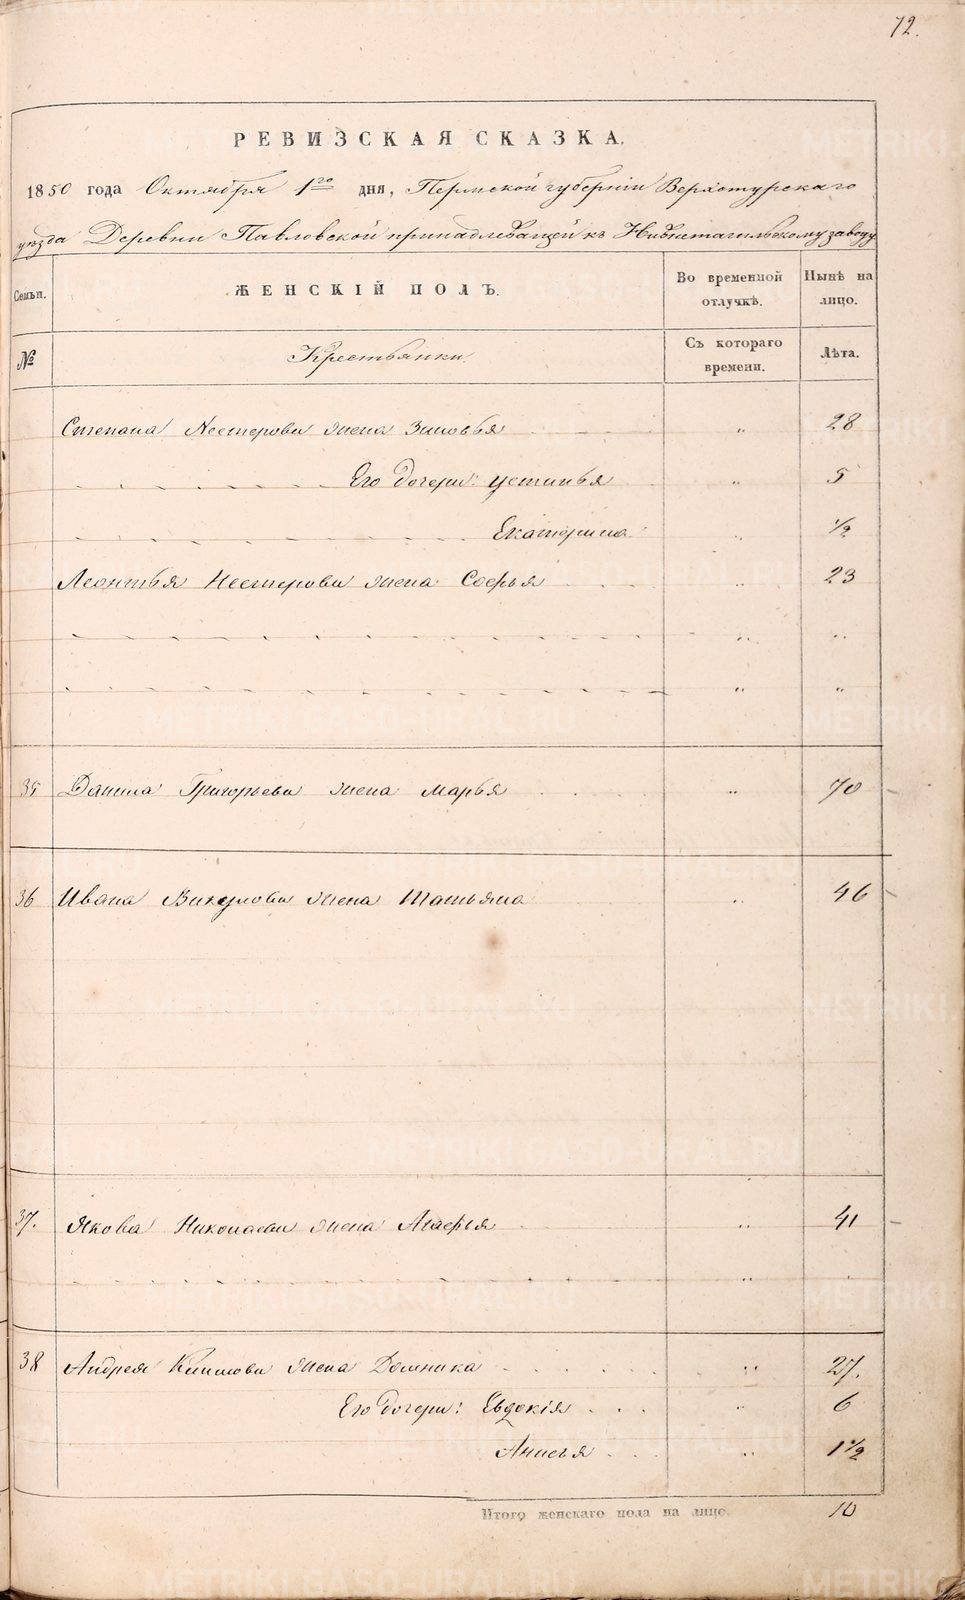 72.
РЕВИЗСКАЯ СКАЗКА.
1850 года Октября 1го дня, Пермской губерніи Верхотурскаго
уѣзда Деревни Павловской принадлежащей къ Нижнетагильскому заводу
Семьи. ЖЕНСКІЙ ПОЛЪ. Во временной отлучкѣ. Нынѣ на лицо.
№ Крестьянки. Съ котораго времени. Лѣта.
Степана Нестерова жена Зиновья " 28
Его дочери: Устинья " 5
Екатерина " 1/2
Леонтья Нестерова жена Софья " 23
" "
" "
35 Данила Григорьева жена Марья " 70
36 Ивана Викулова жена Татьяна " 46
37. Якова Николаева жена Агафья " 41
"
38 Андрея Климова жена Домника " 27.
Его дочери: Евдокія " 6
Анисья " 1 1/2
Итого женскаго пола на лицо 10
METRIKI.GASO-URAL.RU